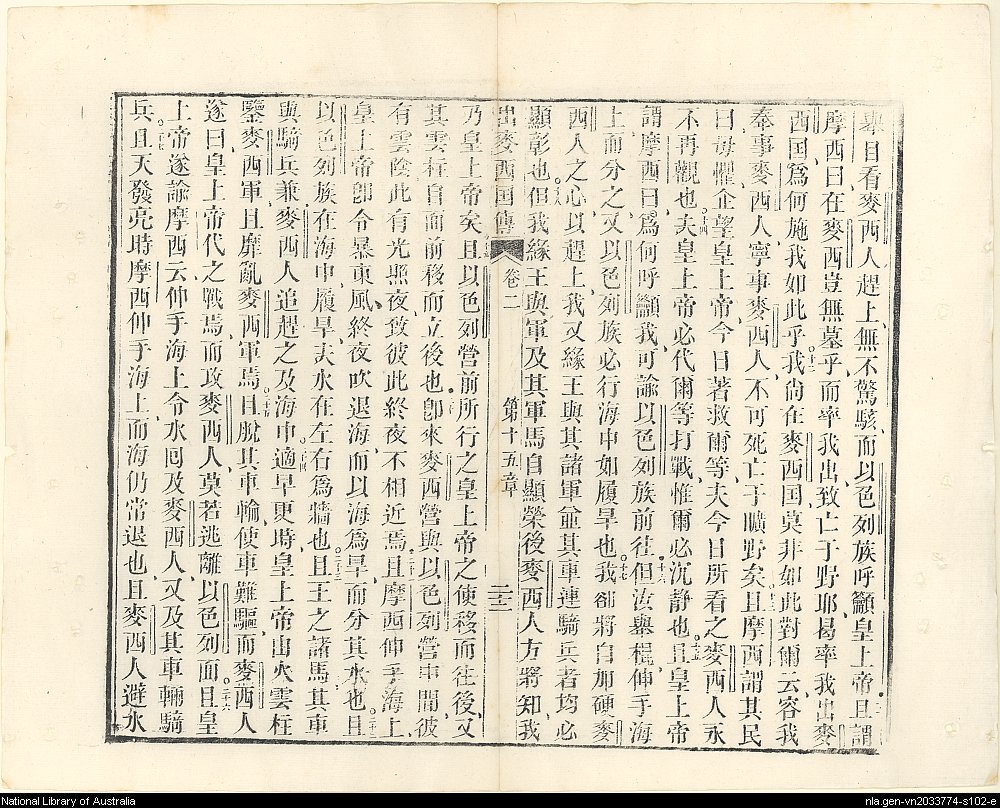 舉目看麥西人趕上、無不驚駭、而以色列族呼籲皇上帝、且謂
摩西曰、在麥西豈無墓乎、而率我出、致亡于野耶、曷率我出麥
西国、爲何施我如此乎、我尚在麥西国、莫非如此對爾云、容我
奉事麥西人、寧事麥西人、不可死亡于曠野矣、且摩西謂其民
曰、毋懼、企望皇上帝、今日著救爾等、夫今日所看之麥西人、永
不再觀也、夫皇上帝必代爾等打戰、惟爾必沉静也、且皇上帝
謂摩西曰、爲何呼籲我、可諭以色列族前往、但汝舉棍、伸手海
上、而分之、又以色列族必行海中、如履旱也、我卻將自加硬麥
西人之心、以趕上、我又緣王與其諸軍、並其車連騎兵者、均必
顯彰也、但我緣王與軍及其軍馬自顯榮後、麥西人方將知、我
出麥西国傳 卷二 第十五章 二十三
乃皇上帝矣、且以色列營前所行之皇上帝之使、移而往後、又
其雲柱自面前移、而立後也、卽來麥西營與以色列營中間、彼
有雲陰、此有光照夜、致彼此終夜不相近焉、且摩西伸手海上、
皇上帝卽令暴東風終夜吹退海、而以海爲旱、而分其水也、且
以色列族在海中履旱、夫水在左右爲牆也、且王之諸馬、其車
與騎兵、兼麥西人、追趕之及海中、適早更時、皇上帝由火雲柱
鑒麥西軍、且靡亂麥西軍焉、且脫其車輪、使車難驅、而麥西人
遂曰、皇上帝代之戰焉、而攻麥西人、莫若逃離以色列面、且皇
上帝遂諭摩西云、伸手海上、令水囘及麥西人、又及其車輛騎
兵、且天發亮時、摩西伸手海上、而海仍常退也、且麥西人避水